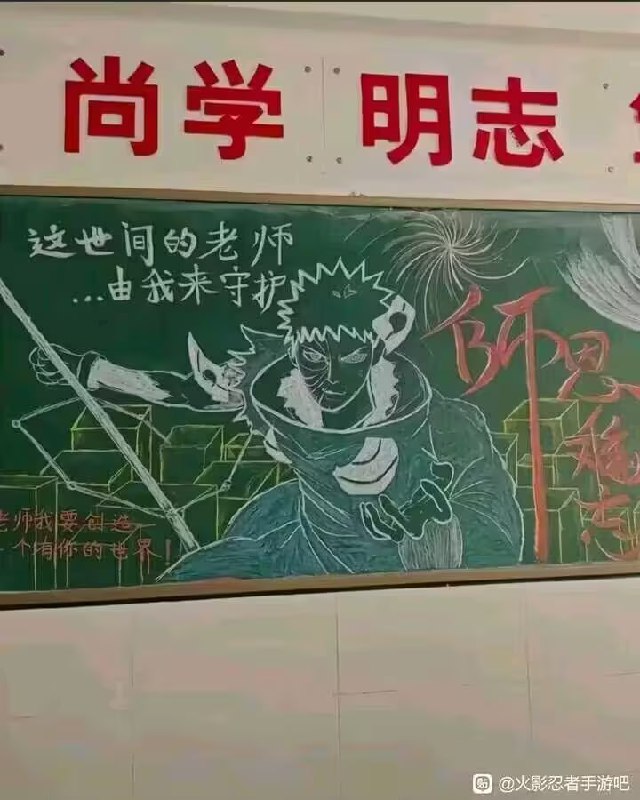 尚学 明志
这世间的老师
...由我来守护
師恩难忘
老师我要创造一
个有你的世界！
@火影忍者手游吧